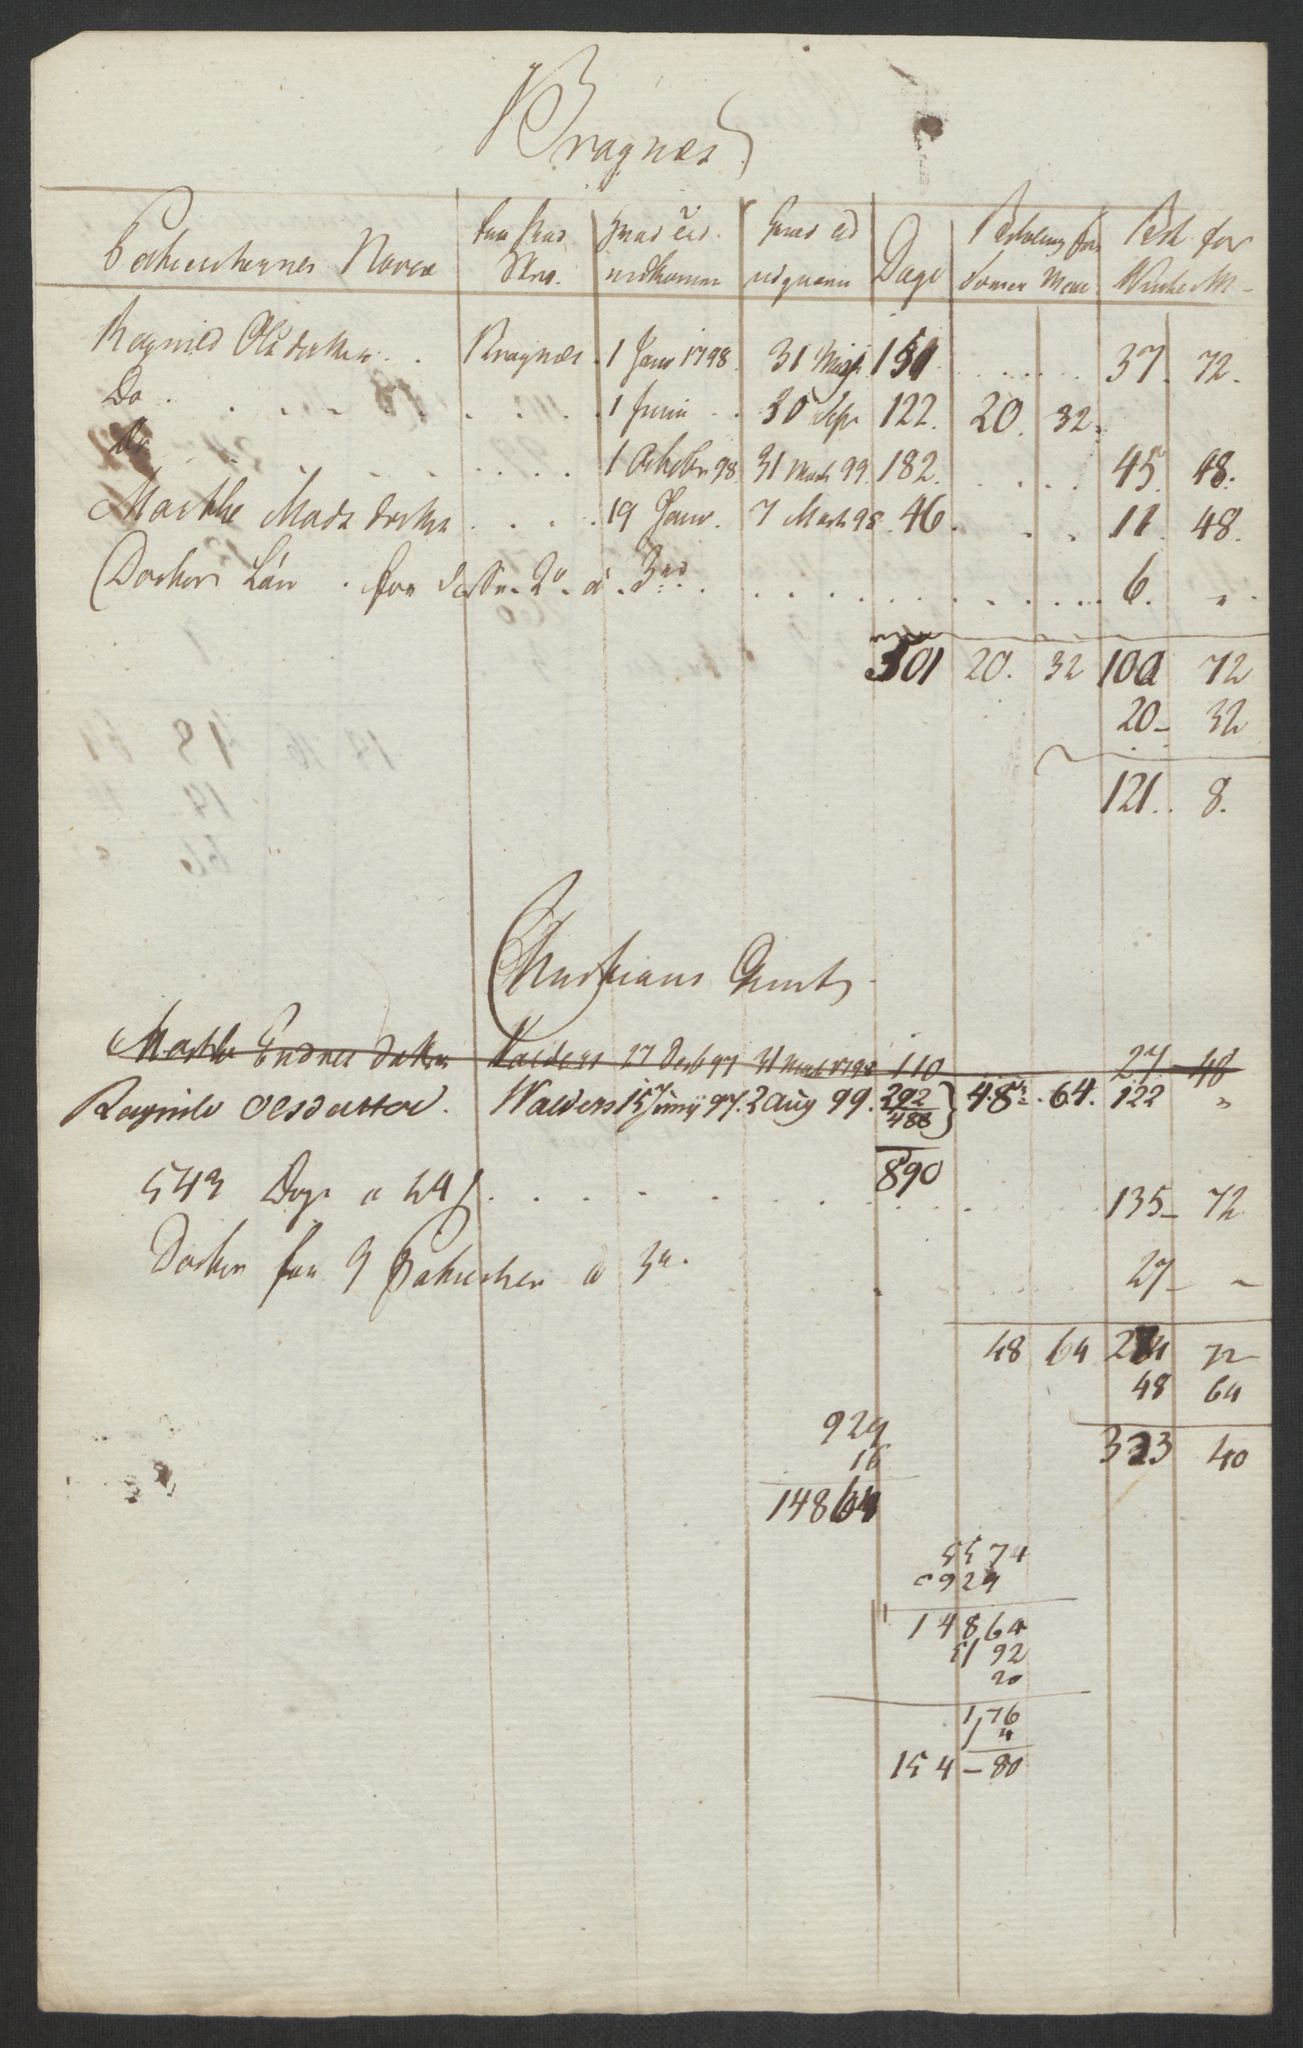 Bragnæs
Patienternes Navne | fra hvad Stæd. | hvad tid indkommen | hvad tid udgaaen | Dage | Betaling for Sommer Maan | Bet. for Vinter M.
Ragnild Olsdatter . . Bragnæs . 1 Janr 1798. 31 Maji 151 . . . . 37. 72.
Do . . . . . . . 1 Junii . . 30 Sepr 122. 20. 32.
Do . . . . . . . 1 Octobr 98. 31 Marts 99. 182. . . . . 45. 48.
Marthe Mads datter . . . . 19 Janr. 7 Marts 98. 46. . . . 11. 48.
Doctor Løn . for 2 a 3 rd . . . . . . . 6. "
501 20. 32 100 72
20 - 32
121. 8.
Christians Amt
Marthe Endres datter Valders 17 Decb 97 31 Marts 1798 110 27 - 48
Ragnild Olsdatter. Walders 15 Junij 97. 2 Aug 99. 292 } 48. 64. 122 "
488
890
543 Dage a 24 s . . . . . . . 135 - 72
Doctor for 9 Patienter a 3 . . 27 - -
48 64 284 72
48 64
333 40
929
16
14864
5574
929
14864
5192
20
176
4
154 - 80